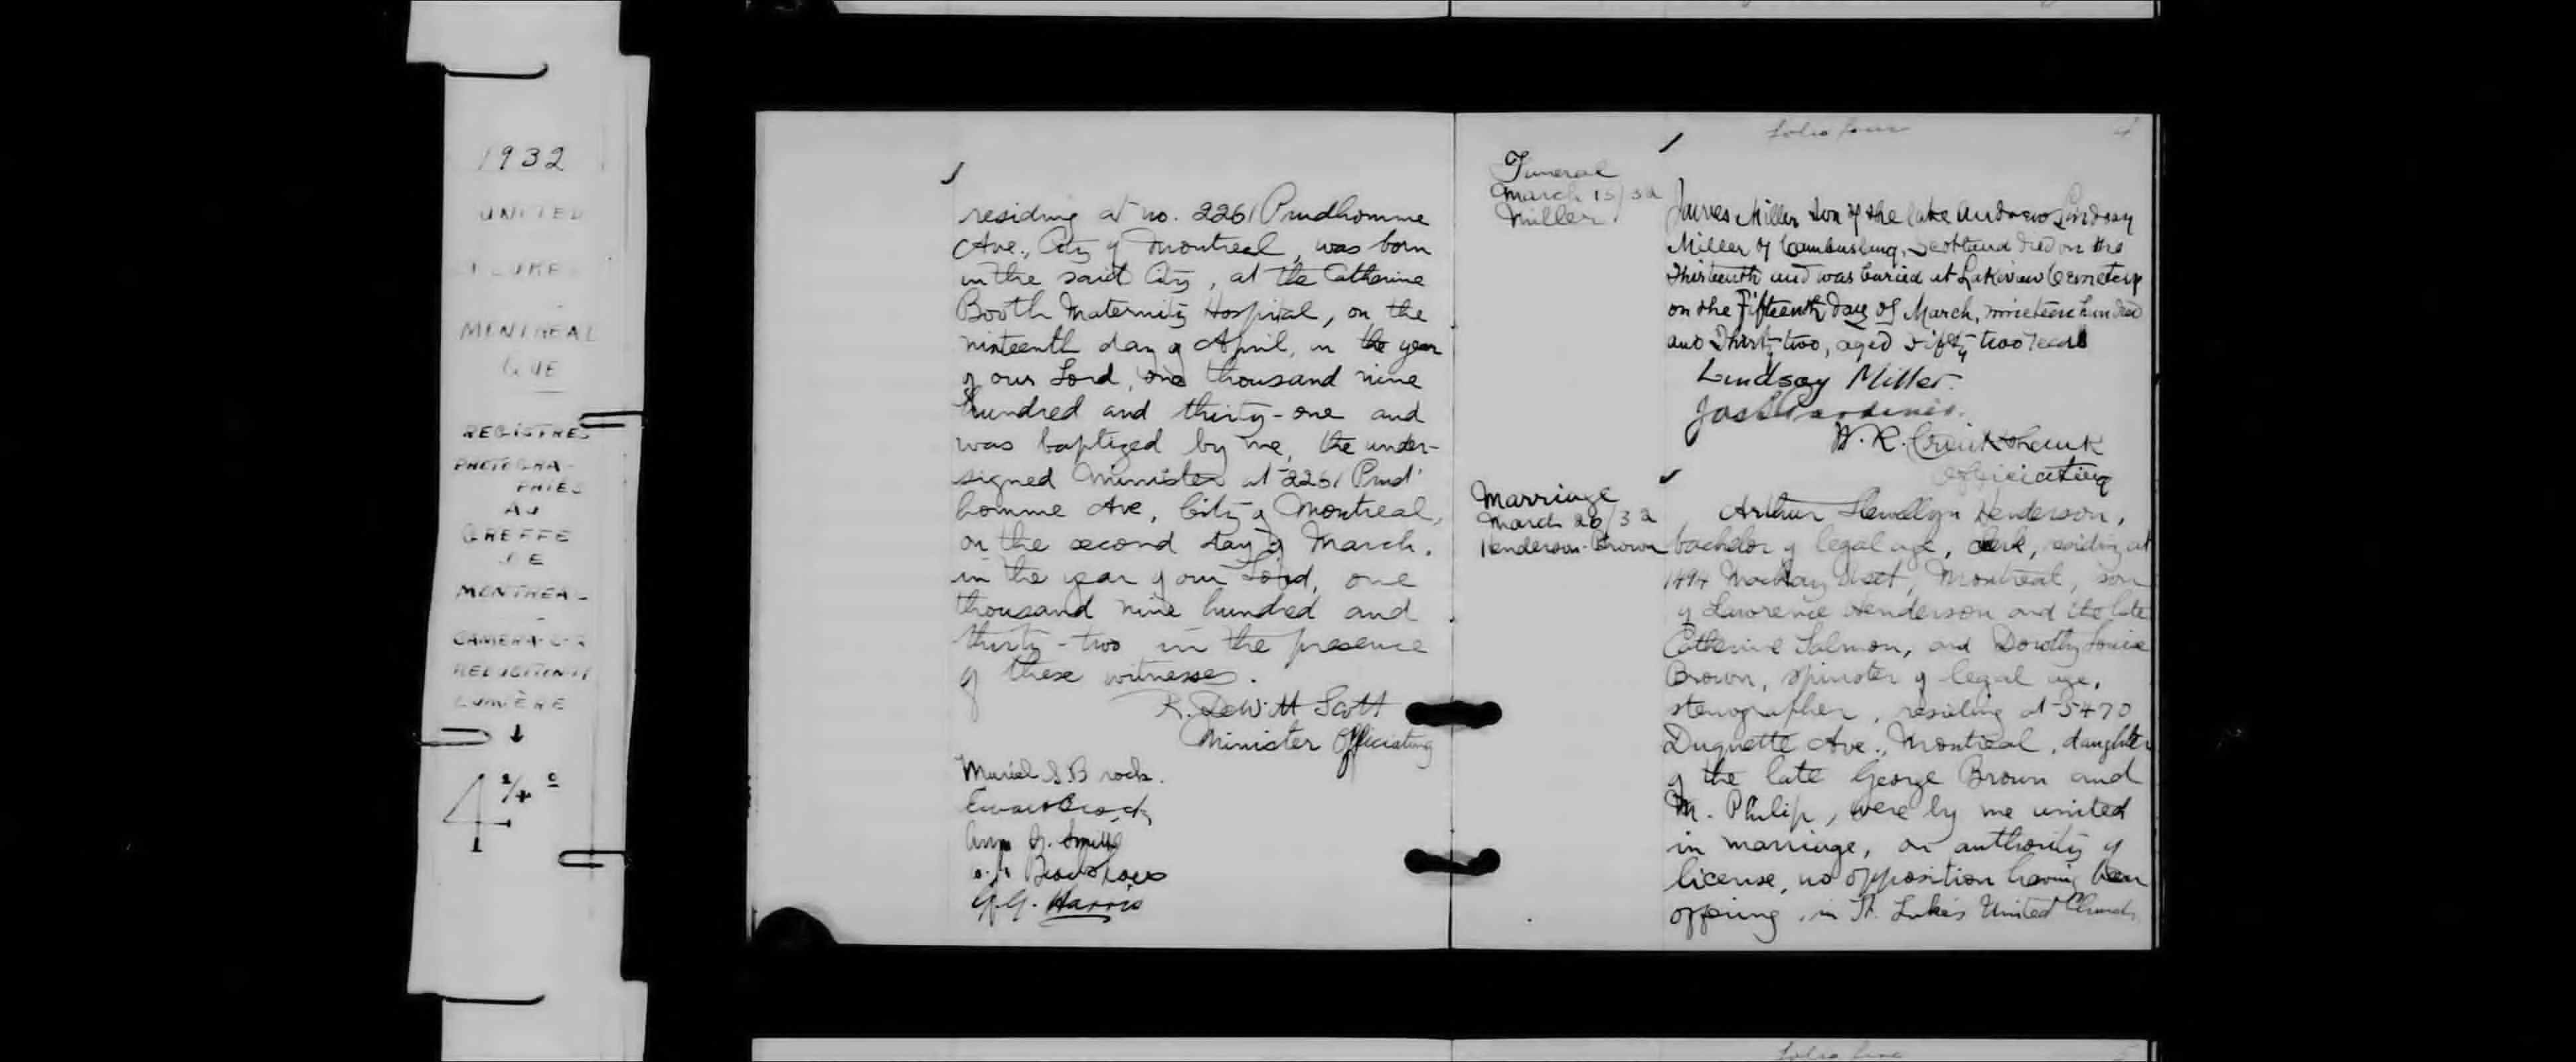 1932
UNITED
ST LUKE
MONTREAL
QUE
REGISTRES
PHOTOGRA-
PHIES
AU
GREFFE
DE
MONTREAL
CAMERA
LUMIÈRE
4 1/4
residing at no. 2261 Prudhomme
Ave., City of Montreal, was born
in the said City, at the Catherine
Booth Maternity Hospital, on the
ninteenth day of April, in the year
of our Lord, one thousand nine
hundred and thirty-one and
was baptized by me, the under-
signed Minister at 2261 Prud'
homme Ave, City of Montreal,
on the second day of March,
in the year of our Lord, one
thousand nine hundred and
thirty-two in the presence
of these witnesses.
R. DeWitt Scott
Minister Officiating
Muriel S. Brock.
Smith
G. G. Harris
folio four 4
Funeral
March 15/32
Miller
James Miller son of the late Andrew Lindsay
Miller of Cambuslang, Scotland died on the
Thirteenth and was buried at Lakeview Cemetery
on the Fifteenth day of March, nineteen hundred
and Thirty two, aged Fifty two years
Lindsay Miller.
W. R. Cruikshank
officiating
Marriage
March 26/32
Henderson-Brown
Arthur Llewellyn Henderson,
bachelor of legal age, clerk, residing at
1494 Mackay Street, Montreal, son
of Lawrence Henderson and the late
Catherine Salmon, and Dorothy Louise
Brown, spinster of legal age,
stenographer, residing at 5470
Duquette Ave., Montreal, daughter
of the late George Brown and
M. Philip, were by me united
in marriage, on authority of
license, no opposition having been
offering, in St. Luke's United Church
folio five 5